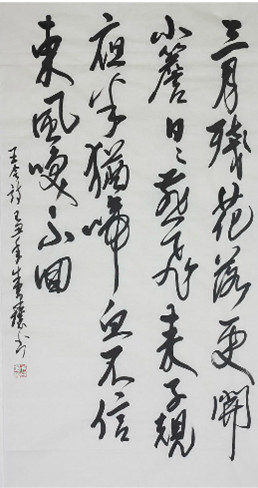 三月残花落更開
小簷日日燕飛来子規
夜半猶啼血不信
東風唤不回
王令詩